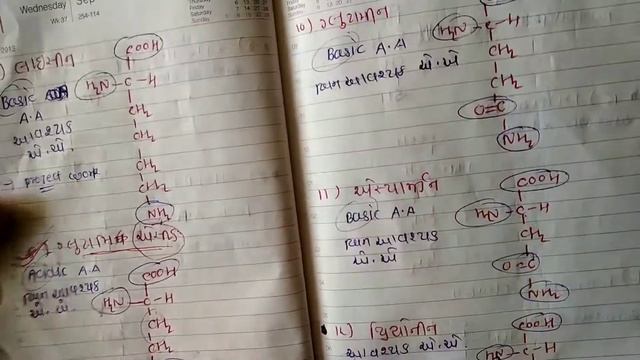 Wednesday
Wk 37
254-114
2013
Thursday
Friday
Saturday
Sunday
) લાઇસીન
Basic
A.A
આવશ્યક
એ.એ.
COOH
H₂N - C - H
CH₂
CH₂
CH₂
CH₂
NH₂
Acidic A.A
બિન આવશ્યક
એ.એ.
COOH
H₂N - C - H
CH₂
CH₂
10) ગ્લુટામીન
Basic A.A
બિન આવશ્યક એ.એ
H₂N - C - H
CH₂
CH₂
O=C
NH₂
11) એસ્પાર્જીન
Basic A.A
બિન આવશ્યક
એ.એ
COOH
H₂N - C - H
CH₂
O=C
NH₂
12) થ્રિયોનીન
આવશ્યક એ.એ.
COOH
H₂N - C - H